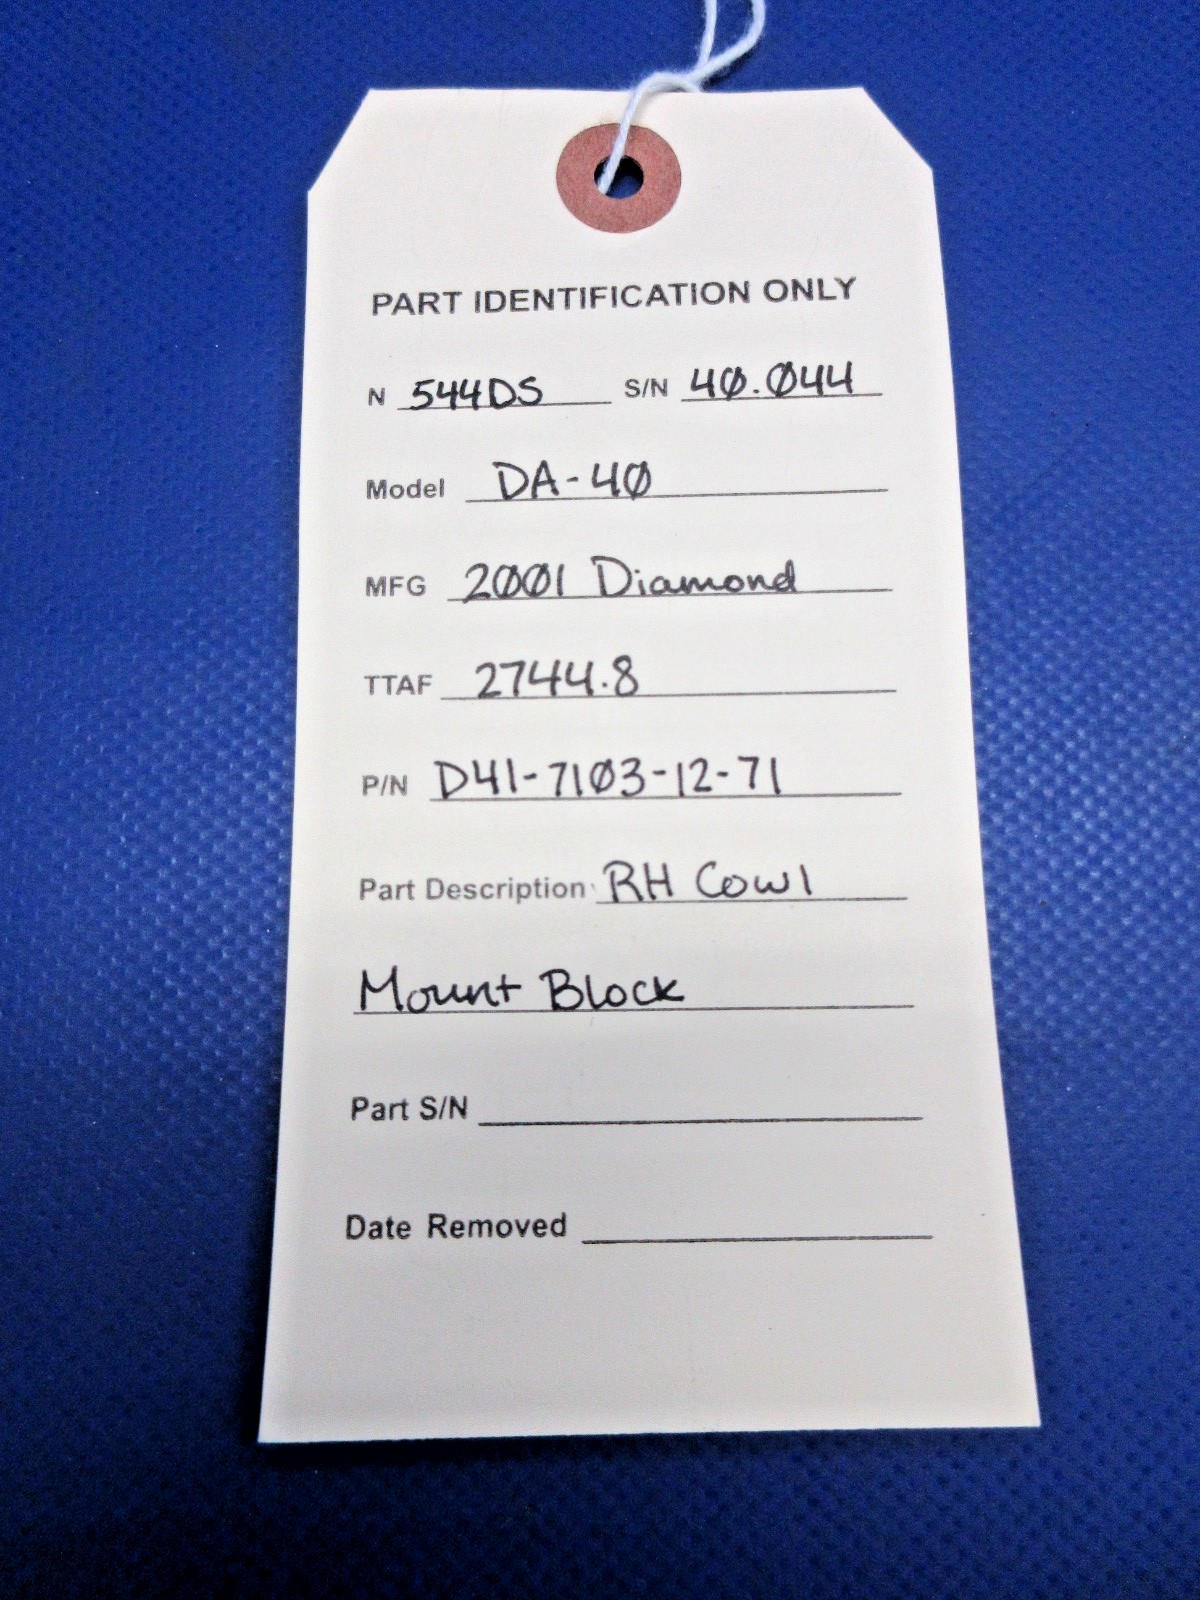 PART IDENTIFICATION ONLY
N 544DS S/N 40.044
Model DA-40
MFG 2001 Diamond
TTAF 2744.8
P/N D41-7103-12-71
Part Description RH Cowl
Mount Block
Part S/N
Date Removed